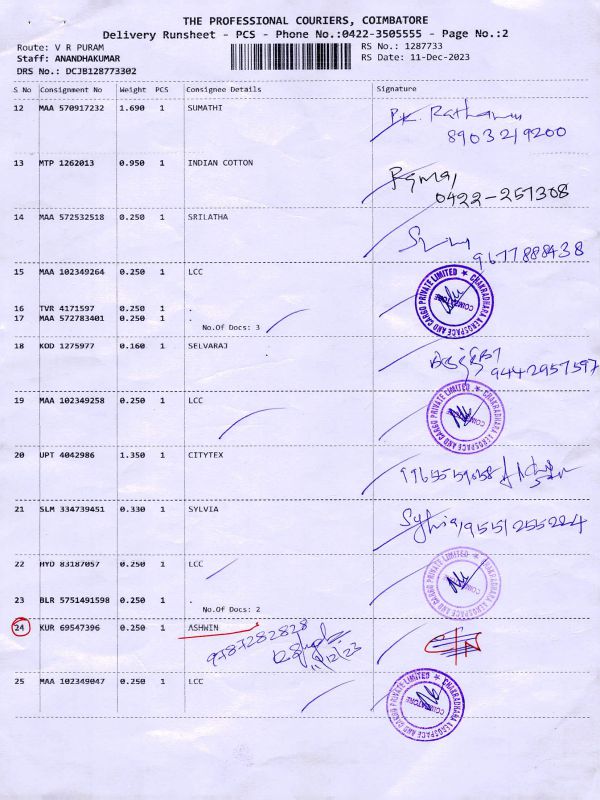 THE PROFESSIONAL COURIERS, COIMBATORE
Delivery Runsheet - PCS - Phone No.:0422-3505555 - Page No.:2
Route: V R PURAM
RS No.: 1287733
Staff: ANANDHAKUMAR
RS Date: 11-Dec-2023
DRS No.: DCJB128773302
S No Consignment No Weight PCS Consignee Details Signature
12 MAA 570917232 1.690 1 SUMATHI
8903219200
13 MTP 1262013 0.950 1 INDIAN COTTON
0422-257308
14 MAA 572532518 0.250 1 SRILATHA
9677888438
15 MAA 102349264 0.250 1 LCC
CHAKRADHARA AEROSPACE AND CARGO PRIVATE LIMITED
16 TVR 4171597 0.250 1 .
17 MAA 572783401 0.250 1 .
No.Of Docs: 3
18 KOD 1275977 0.160 1 SELVARAJ
9442957597
19 MAA 102349258 0.250 1 LCC
CHAKRADHARA AEROSPACE AND CARGO PRIVATE LIMITED
20 UPT 4042986 1.350 1 CITYTEX
21 SLM 334739451 0.330 1 SYLVIA
Sylvia 9551255224
22 HYD 83187057 0.250 1 LCC
CHAKRADHARA AEROSPACE AND CARGO PRIVATE LIMITED
23 BLR 5751491598 0.250 1 .
No.Of Docs: 2
24 KUR 69547396 0.250 1 ASHWIN
9787282828
11/12/23
25 MAA 102349047 0.250 1 LCC
CHAKRADHARA AEROSPACE AND CARGO PRIVATE LIMITED
COIMBATORE